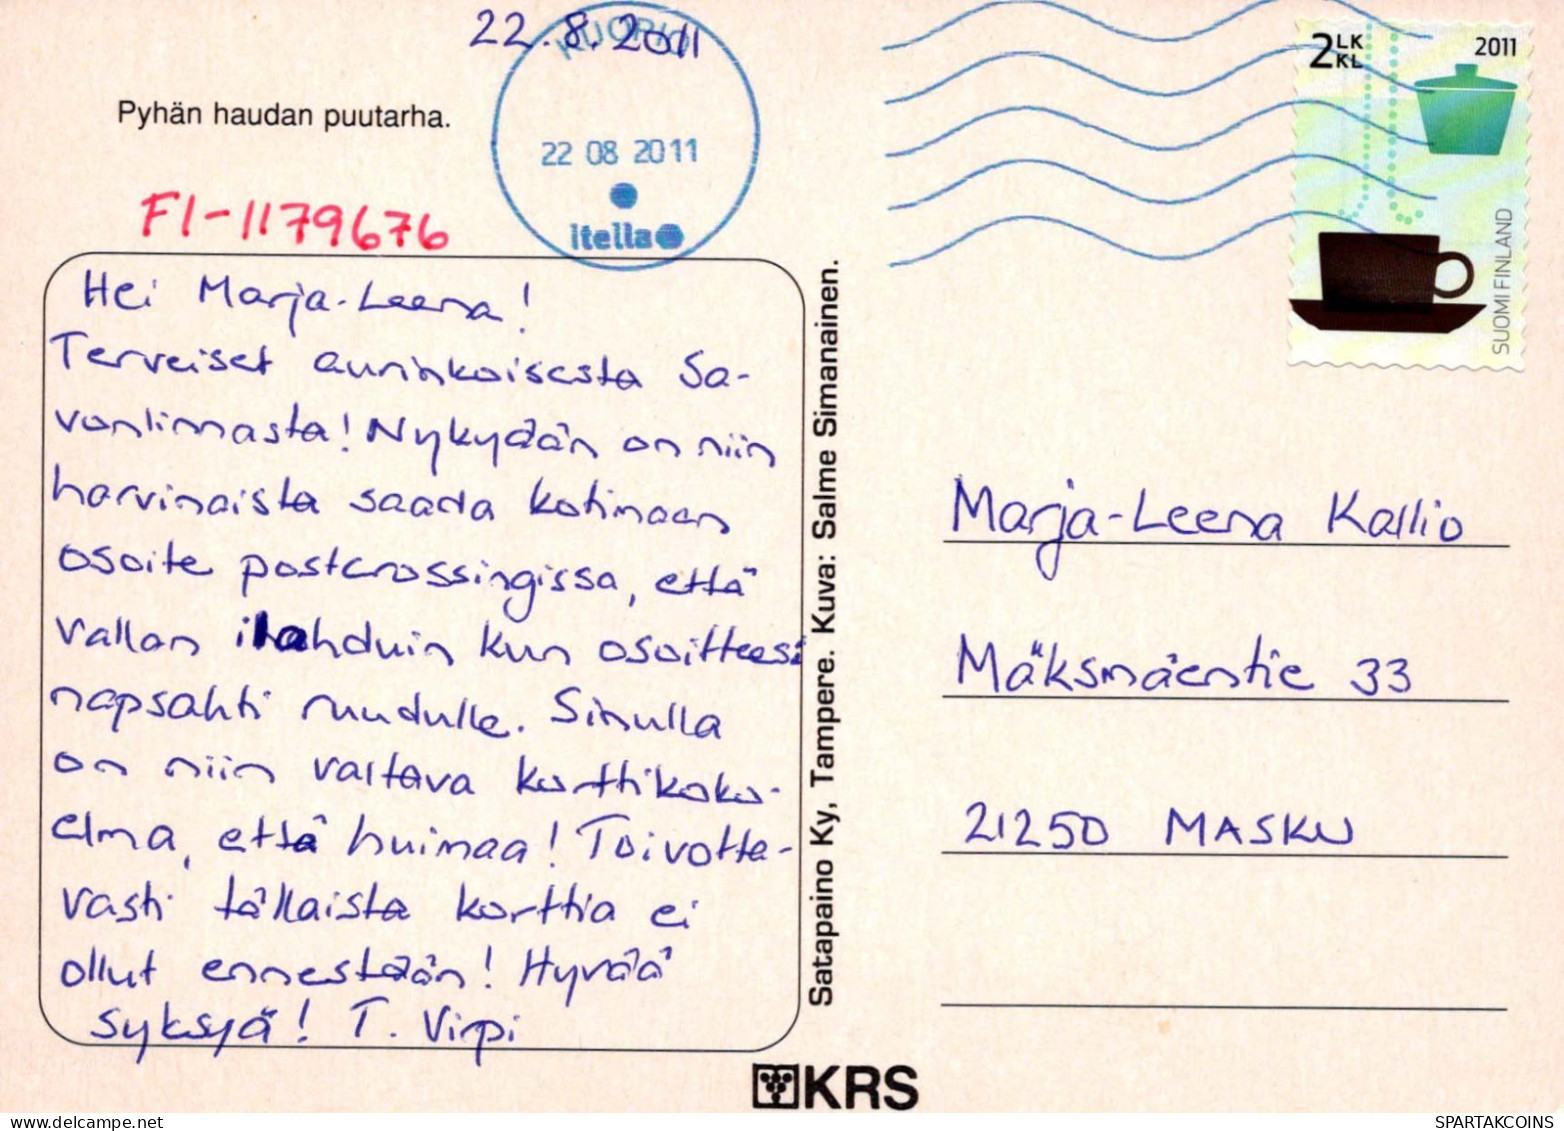 22.8.2011
KUOPIO
22 08 2011
itella
2 LK
KL
2011
SUOMI FINLAND
Pyhän haudan puutarha.
FI-1179676
Hei Marja-Leena!
Terveiset aurinkoisesta Sa-
vonlinnasta! Nykyään on niin
harvinaista saada kotimaan
osoite postcrossingissa, että
vallan ilahduin kun osoitteesi
napsahti ruudulle. Sinulla
on niin valtava korttikoko-
elma, että huimaa! Toivotta-
vasti tällaista korttia ei
ollut ennestään! Hyvää
syksyä! T. Virpi
Satapaino Ky, Tampere. Kuva: Salme Simanainen.
Marja-Leena Kallio
Mäksmäentie 33
21250 MASKU
KRS
SPARTAKCOINS